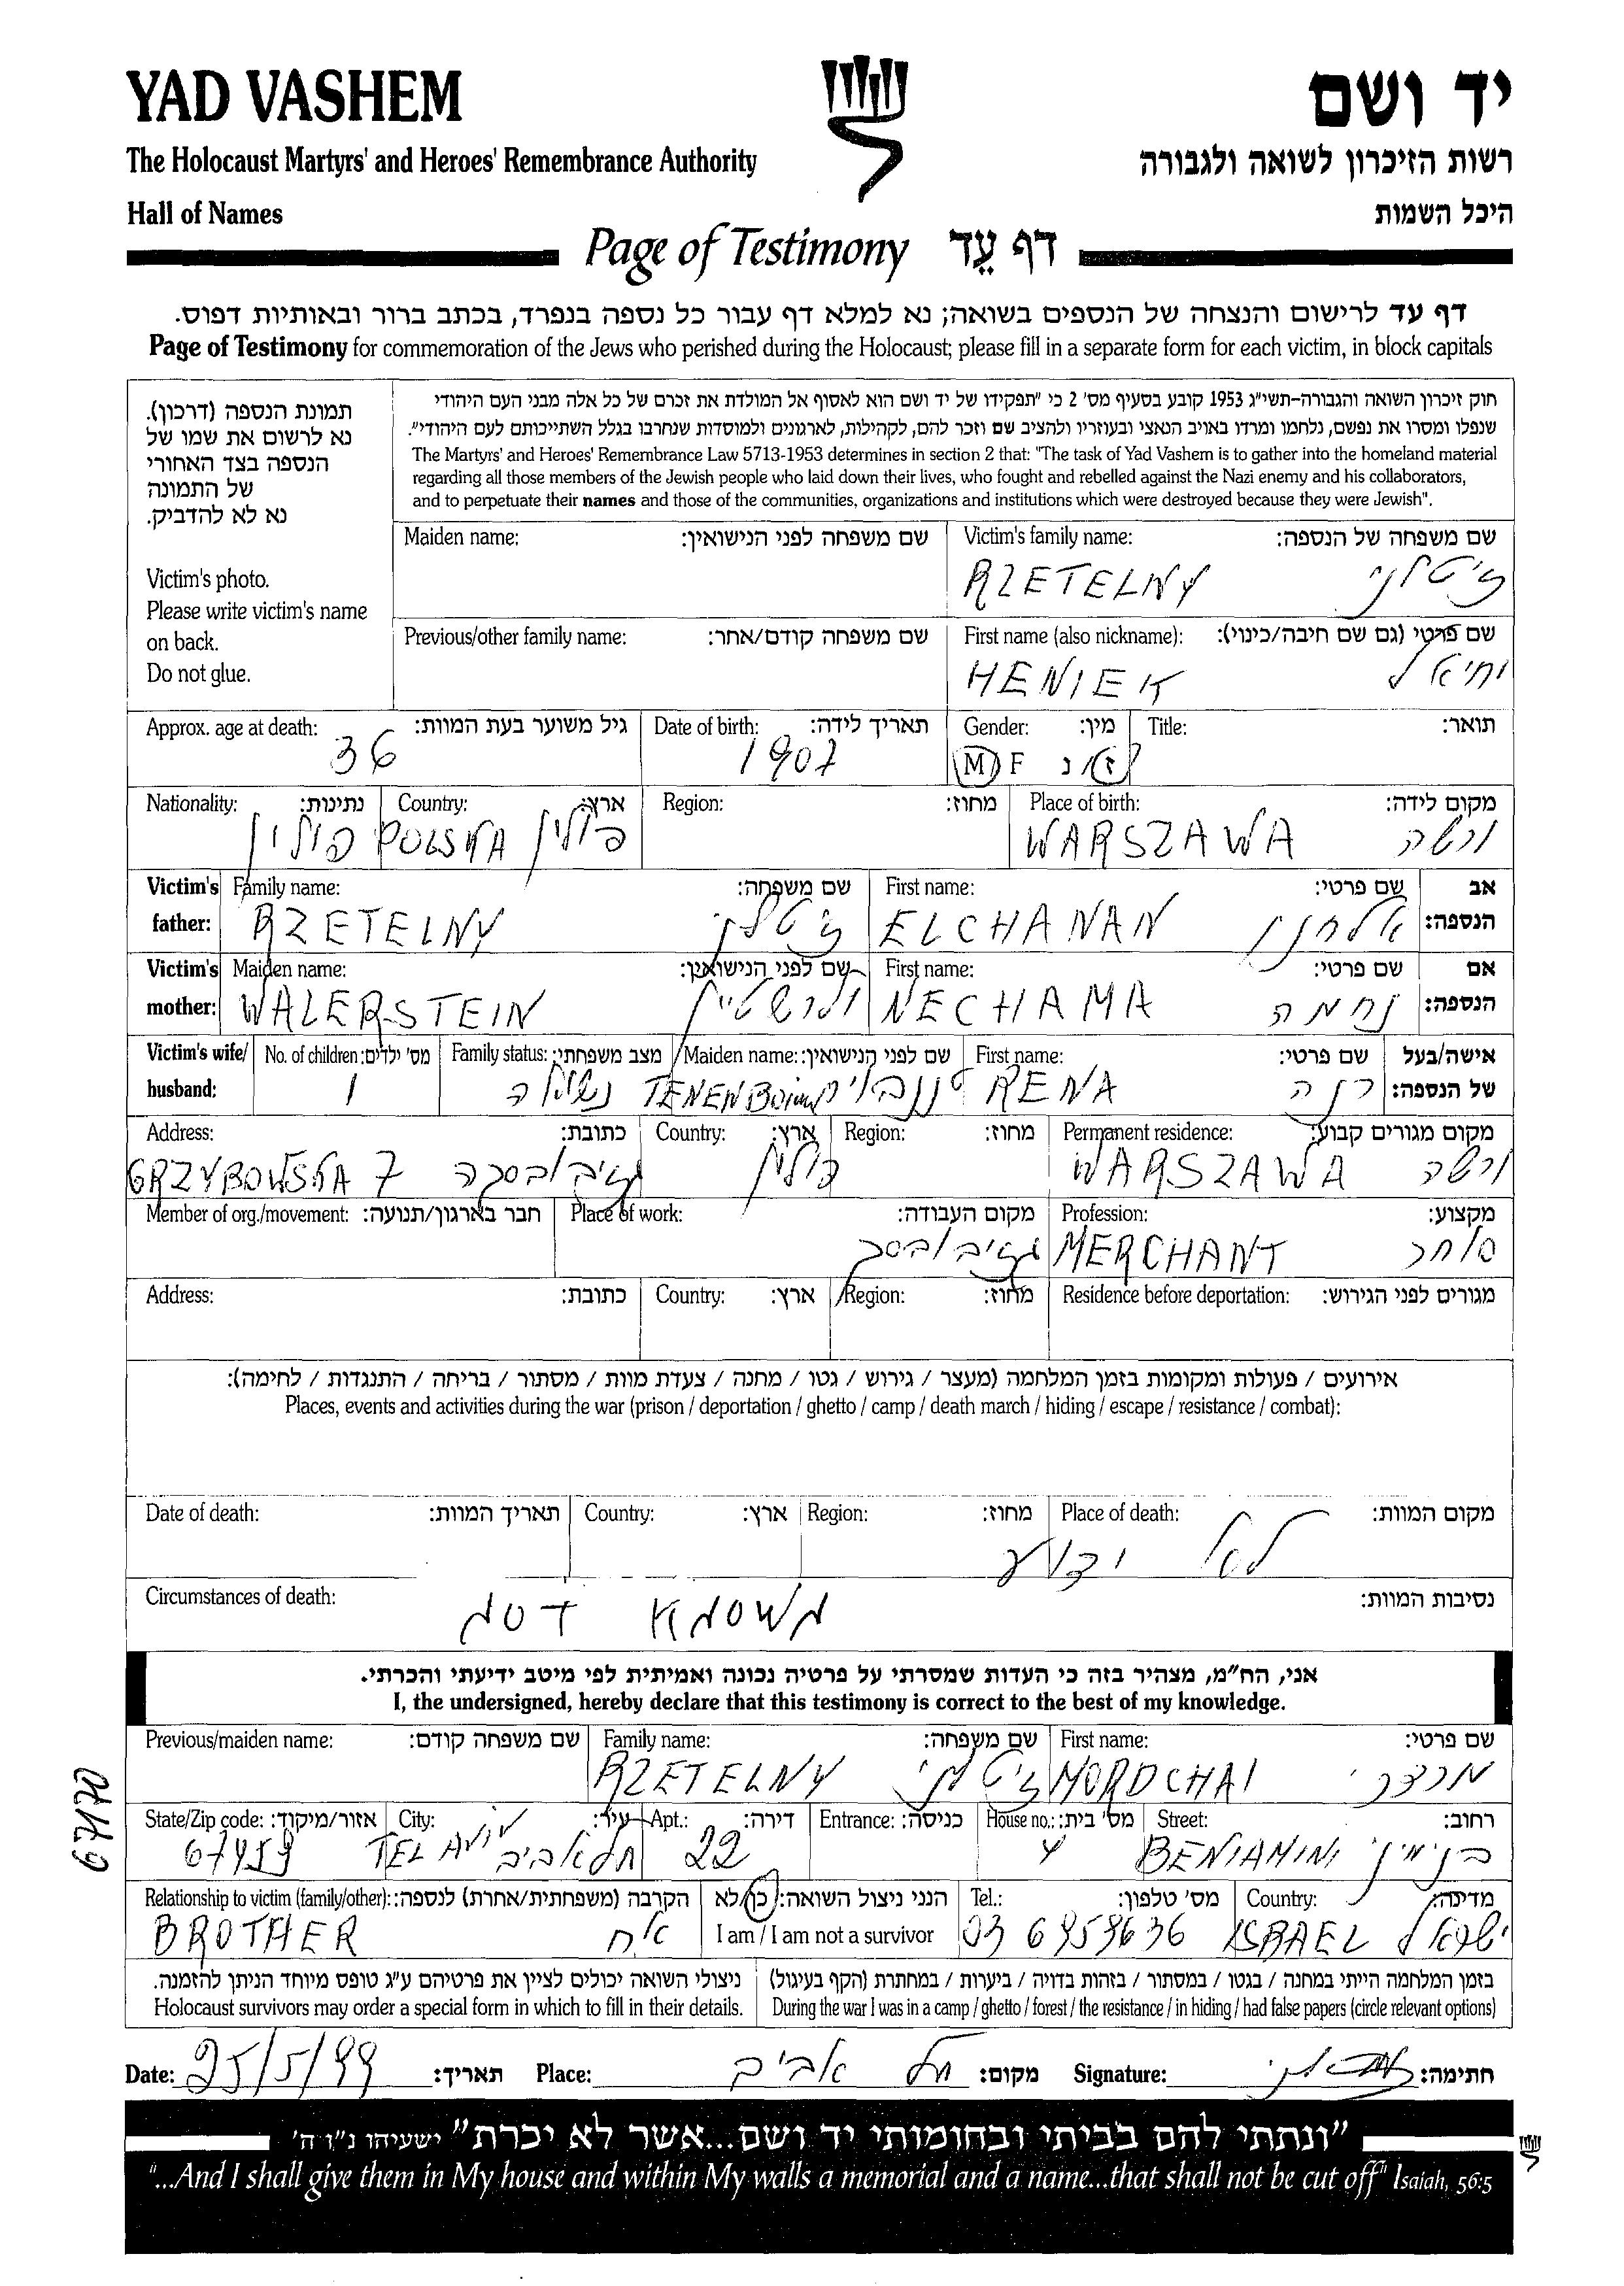 YAD VASHEM יד ושם
The Holocaust Martyrs' and Heroes' Remembrance Authority רשות הזיכרון לשואה ולגבורה
Hall of Names היכל השמות
Page of Testimony דף עֵד
דף עד לרישום והנצחה של הנספים בשואה; נא למלא דף עבור כל נספה בנפרד, בכתב ברור ובאותיות דפוס.
Page of Testimony for commemoration of the Jews who perished during the Holocaust; please fill in a separate form for each victim, in block capitals
תמונת הנספה (דרכון).
נא לרשום את שמו של
הנספה בצד האחורי
של התמונה
נא לא להדביק.
Victim's photo.
Please write victim's name
on back.
Do not glue.
חוק זיכרון השואה והגבורה-תשי"ג 1953 קובע בסעיף מס' 2 כי "תפקידו של יד ושם הוא לאסוף אל המולדת את זכרם של כל אלה מבני העם היהודי
שנפלו ומסרו את נפשם, נלחמו ומרדו באויב הנאצי ובעוזריו ולהציב שם וזכר להם, לקהילות, לארגונים ולמוסדות שנחרבו בגלל השתייכותם לעם היהודי".
The Martyrs' and Heroes' Remembrance Law 5713-1953 determines in section 2 that: "The task of Yad Vashem is to gather into the homeland material
regarding all those members of the Jewish people who laid down their lives, who fought and rebelled against the Nazi enemy and his collaborators,
and to perpetuate their names and those of the communities, organizations and institutions which were destroyed because they were Jewish".
Maiden name: שם משפחה לפני הנישואין: Victim's family name: שם משפחה של הנספה:
RZETELNY
Previous/other family name: שם משפחה קודם/אחר: First name (also nickname): שם פרטי (גם שם חיבה/כינוי):
HENIEK יחיאל
Approx. age at death: גיל משוער בעת המוות: Date of birth: תאריך לידה: Gender: מין: Title: תואר:
36 1907 M F ז/נ
Nationality: נתינות: Country: ארץ: Region: מחוז: Place of birth: מקום לידה:
פולין POLSKA פולין WARSZAWA ורשה
Victim's father: Family name: שם משפחה: First name: שם פרטי: אב הנספה:
RZETELNY ELCHANAN אלחנן
Victim's mother: Maiden name: שם לפני הנישואין: First name: שם פרטי: אם הנספה:
WALERSTEIN ולרשטיין NECHAMA נחמה
Victim's wife/ husband: No. of children: מס' ילדים: Family status: מצב משפחתי: Maiden name: שם לפני הנישואין: First name: שם פרטי: אישה/בעל של הנספה:
1 נשוי RENA רנה
Address: כתובת: Country: ארץ: Region: מחוז: Permanent residence: מקום מגורים קבוע:
GRZYBOWSKA 7 גזיבובסקה פולין WARSZAWA ורשה
Member of org./movement: חבר בארגון/תנועה: Place of work: מקום העבודה: Profession: מקצוע:
MERCHANT סוחר
Address: כתובת: Country: ארץ: Region: מחוז: Residence before deportation: מגורים לפני הגירוש:
אירועים / פעולות ומקומות בזמן המלחמה (מעצר / גירוש / גטו / מחנה / צעדת מוות / מסתור / בריחה / התנגדות / לחימה):
Places, events and activities during the war (prison / deportation / ghetto / camp / death march / hiding / escape / resistance / combat):
Date of death: תאריך המוות: Country: ארץ: Region: מחוז: Place of death: מקום המוות:
לא ידוע
Circumstances of death: נסיבות המוות:
אני, הח"מ, מצהיר בזה כי העדות שמסרתי על פרטיה נכונה ואמיתית לפי מיטב ידיעתי והכרתי.
I, the undersigned, hereby declare that this testimony is correct to the best of my knowledge.
Previous/maiden name: שם משפחה קודם: Family name: שם משפחה: First name: שם פרטי:
RZETELNY MORDCHAI מרדכי
State/Zip code: אזור/מיקוד: City: עיר: Apt.: דירה: Entrance: כניסה: House no.: מס' בית: Street: רחוב:
67459 TEL AVIV תל אביב 22 4 BENIAMINI בנימיני
67170
Relationship to victim (family/other): הקרבה (משפחתית/אחרת) לנספה: הנני ניצול השואה: כן/לא Tel.: מס' טלפון: Country: מדינה:
BROTHER אח I am / I am not a survivor 03 6959636 ISRAEL ישראל
ניצולי השואה יכולים לציין את פרטיהם ע"ג טופס מיוחד הניתן להזמנה. בזמן המלחמה הייתי במחנה / בגטו / במסתור / בזהות בדויה / ביערות / במחתרת (הקף בעיגול)
Holocaust survivors may order a special form in which to fill in their details. During the war I was in a camp / ghetto / forest / the resistance / in hiding / had false papers (circle relevant options)
Date: 25/5/99 תאריך: Place: תל אביב מקום: Signature: חתימה:
"ונתתי להם בביתי ובחומותי יד ושם...אשר לא יכרת" ישעיהו נ"ו ה'
"...And I shall give them in My house and within My walls a memorial and a name...that shall not be cut off" Isaiah, 56:5